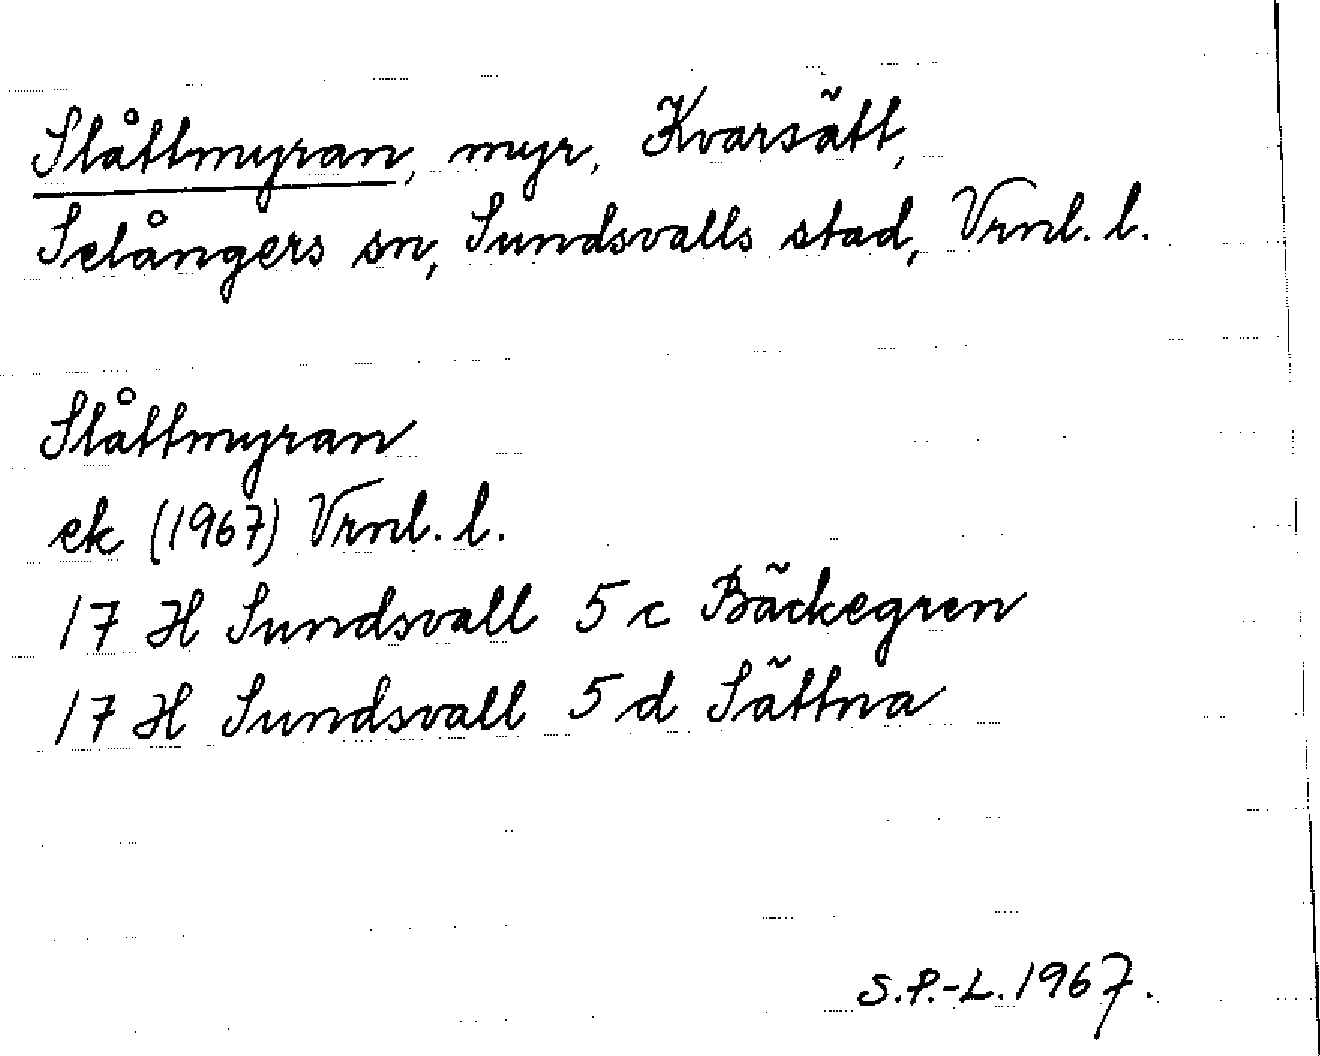 Slåttmyran, myr, Kvarsätt,
Selångers sn, Sundsvalls stad, Vrnl. l.
Slåttmyran
ek (1967) Vrnl. l.
17 H Sundsvall 5 c Bäckegren
17 H Sundsvall 5 d Sättna
S.P.-L. 1967.